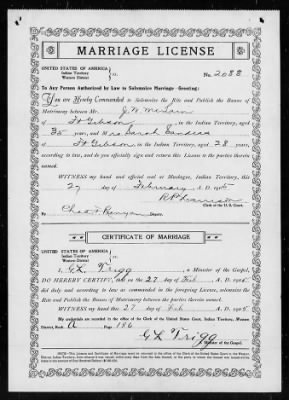 MARRIAGE LICENSE
UNITED STATES OF AMERICA
Indian Territory
Western District
ss.
No. 2088
To Any Person Authorized by Law to Solemnize Marriage—Greeting:
You are Hereby Commanded to Solemnize the Rite and Publish the Banns of
Matrimony between Mr. J. W. McLain
of Ft Gibson in the Indian Territory, aged
35 years, and Mrs Sarah Sanders
of Ft Gibson in the Indian Territory, aged 28 years,
according to law, and do you officially sign and return this License to the parties therein
named.
WITNESS my hand and official seal at Muskogee, Indian Territory, this
27 day of February A. D. 190
R. P. Harrison
Clerk of the U. S. Court.
By Chas. F. Runyan Deputy.
CERTIFICATE OF MARRIAGE
UNITED STATES OF AMERICA
Indian Territory
Western District
ss.
I, G L Trigg, a Minister of the Gospel,
DO HEREBY CERTIFY, on the 27 day of Feb A. D. 190
did duly and according to law as commanded in the foregoing License, solemnize the
Rite and Publish the Banns of Matrimony between the parties therein named.
WITNESS my hand this 27 day of Feb A. D. 190
My credentials are recorded in the office of the Clerk of the United States Court, Indian Territory, Western
District, Book A Page 186
G L Trigg
Minister of the Gospel.